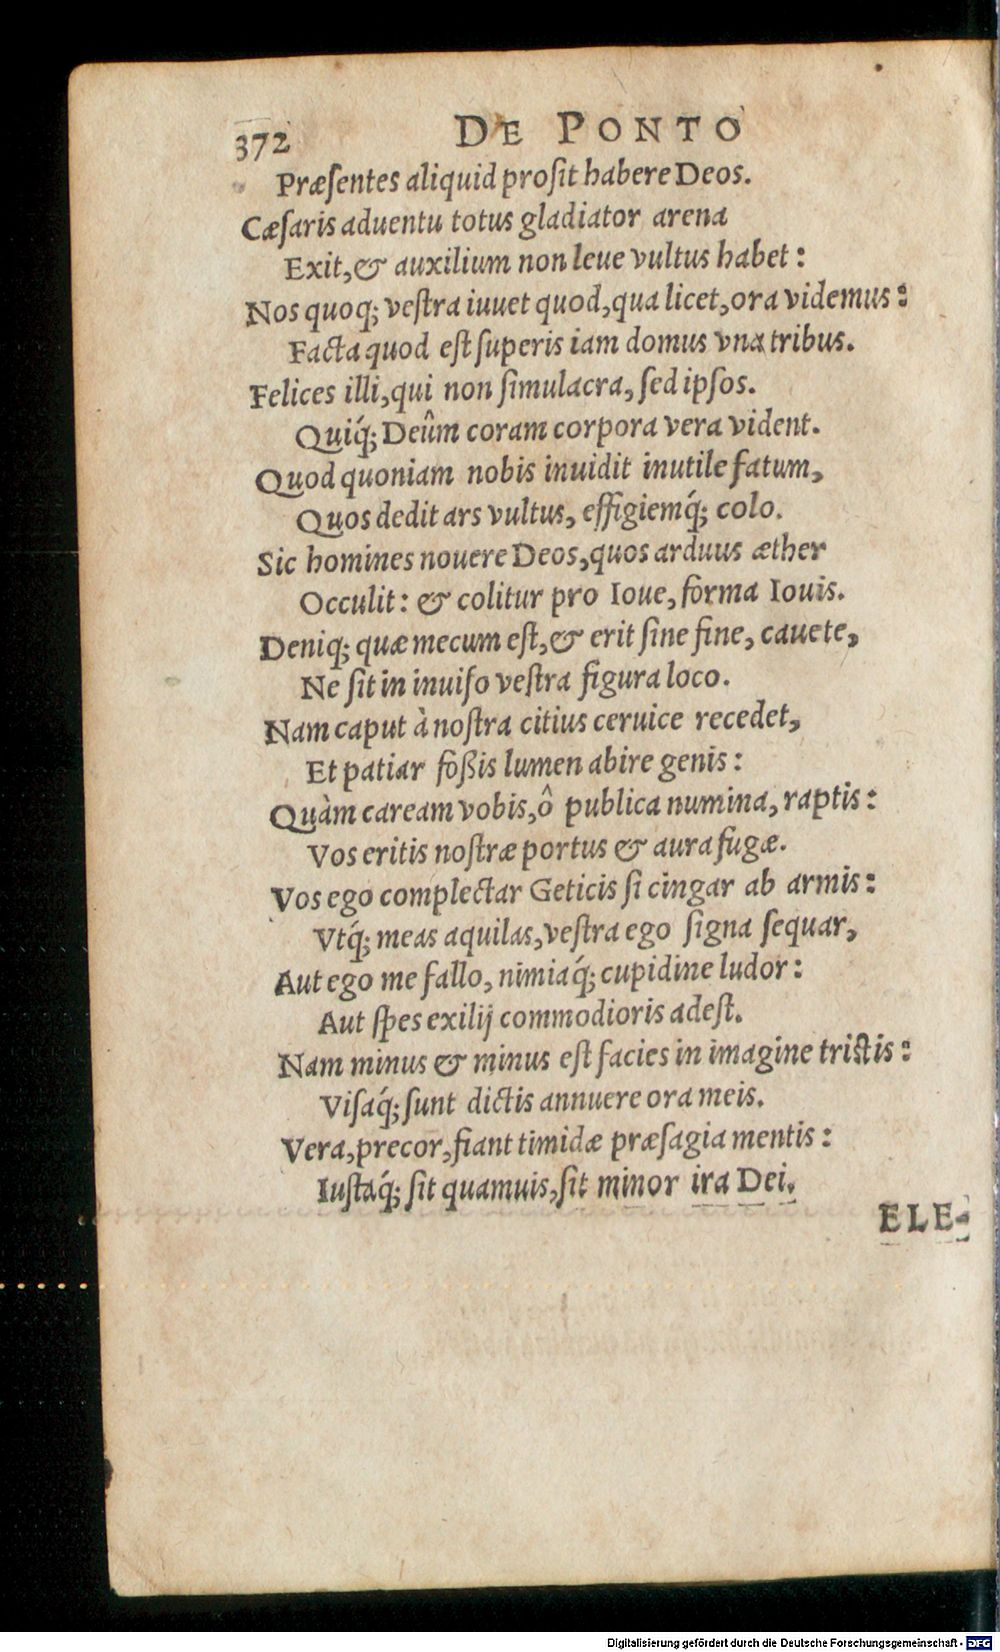 372 DE PONTO
Præſentes aliquid proſit habere Deos.
Cæſaris aduentu totus gladiator arena
Exit, & auxilium non leue vultus habet:
Nos quoq; veſtra iuuet quod, qua licet, ora videmus:
Facta quod eſt ſuperis iam domus vna tribus.
Felices illi, qui non ſimulacra, ſed ipſos.
Quiq́; Deûm coram corpora vera vident.
Quod quoniam nobis inuidit inutile fatum,
Quos dedit ars vultus, effigiemq́; colo.
Sic homines nouere Deos, quos arduus æther
Occulit: & colitur pro Ioue, forma Iouis.
Deniq; quæ mecum eſt, & erit ſine fine, cauete,
Ne ſit in inuiſo veſtra figura loco.
Nam caput à noſtra citius ceruice recedet,
Et patiar foßis lumen abire genis:
Quàm caream vobis, ô publica numina, raptis:
Vos eritis noſtræ portus & aura fugæ.
Vos ego complectar Geticis ſi cingar ab armis:
Vtq́; meas aquilas, veſtra ego ſigna ſequar,
Aut ego me fallo, nimiaq́; cupidine ludor:
Aut ſpes exilij commodioris adeſt.
Nam minus & minus eſt facies in imagine triſtis:
Viſaq́; ſunt dictis annuere ora meis.
Vera, precor, fiant timidæ præſagia mentis:
Iuſtaq́; ſit quamuis, ſit minor ira Dei.
ELE-
Digitalisierung gefördert durch die Deutsche Forschungsgemeinschaft - DFG